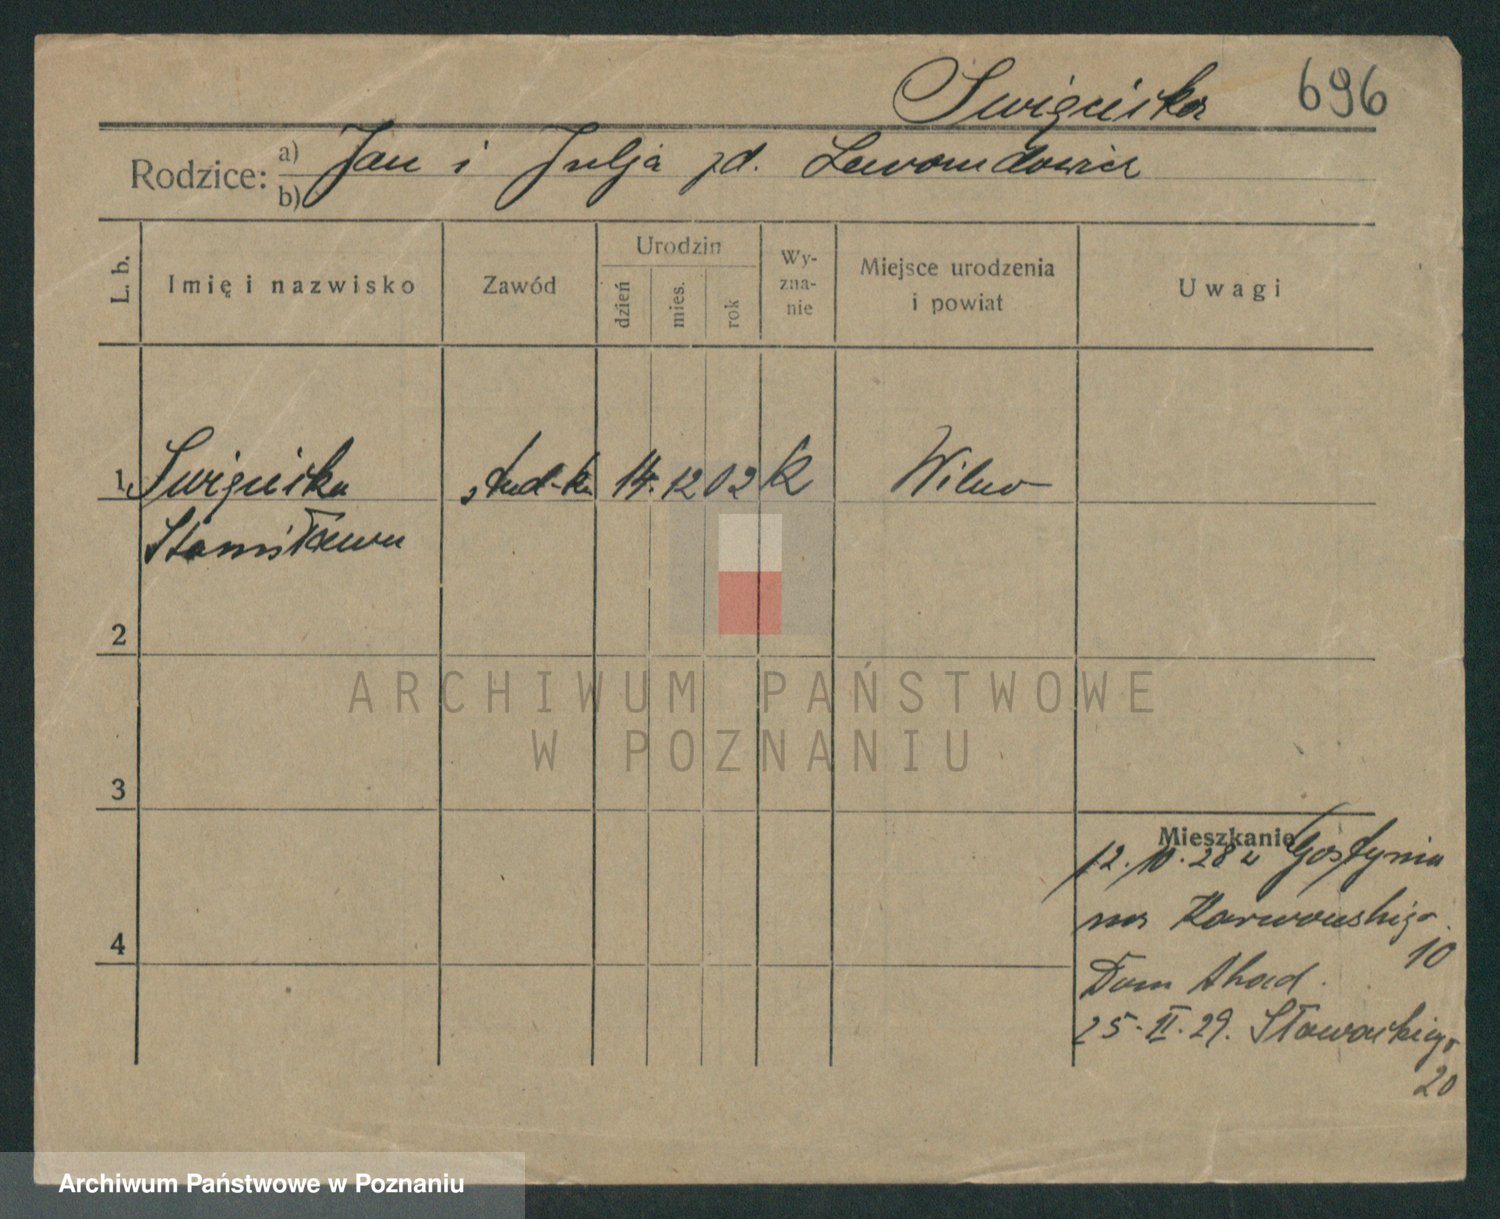 Święcicka 696
Rodzice: a) Jan i Julja zd. Lewandowicz
b)
L. b. Imię i nazwisko Zawód Urodzin dzień mies. rok Wy-zna-nie Miejsce urodzenia i powiat Uwagi
1 Święcicka stud-ka 14. 12 02 k Wilno
Stanisława
2
ARCHIWUM PAŃSTWOWE
W POZNANIU
3
Mieszkanie
12.10.28 z Gostynia
na Karwowskiego
10
Dom Akad.
25.II.29. Słowackiego
20
4
Archiwum Państwowe w Poznaniu